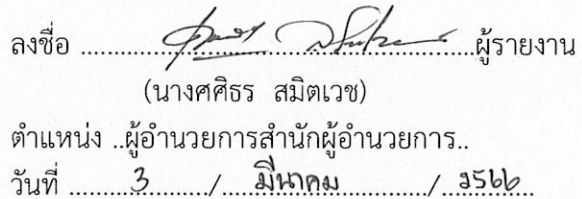 ลงชื่อ ..........................................................ผู้รายงาน
(นางศศิธร สมิตเวช)
ตำแหน่ง ..ผู้อำนวยการสำนักผู้อำนวยการ..
วันที่ ..........3........../......มีนาคม............../..2566........